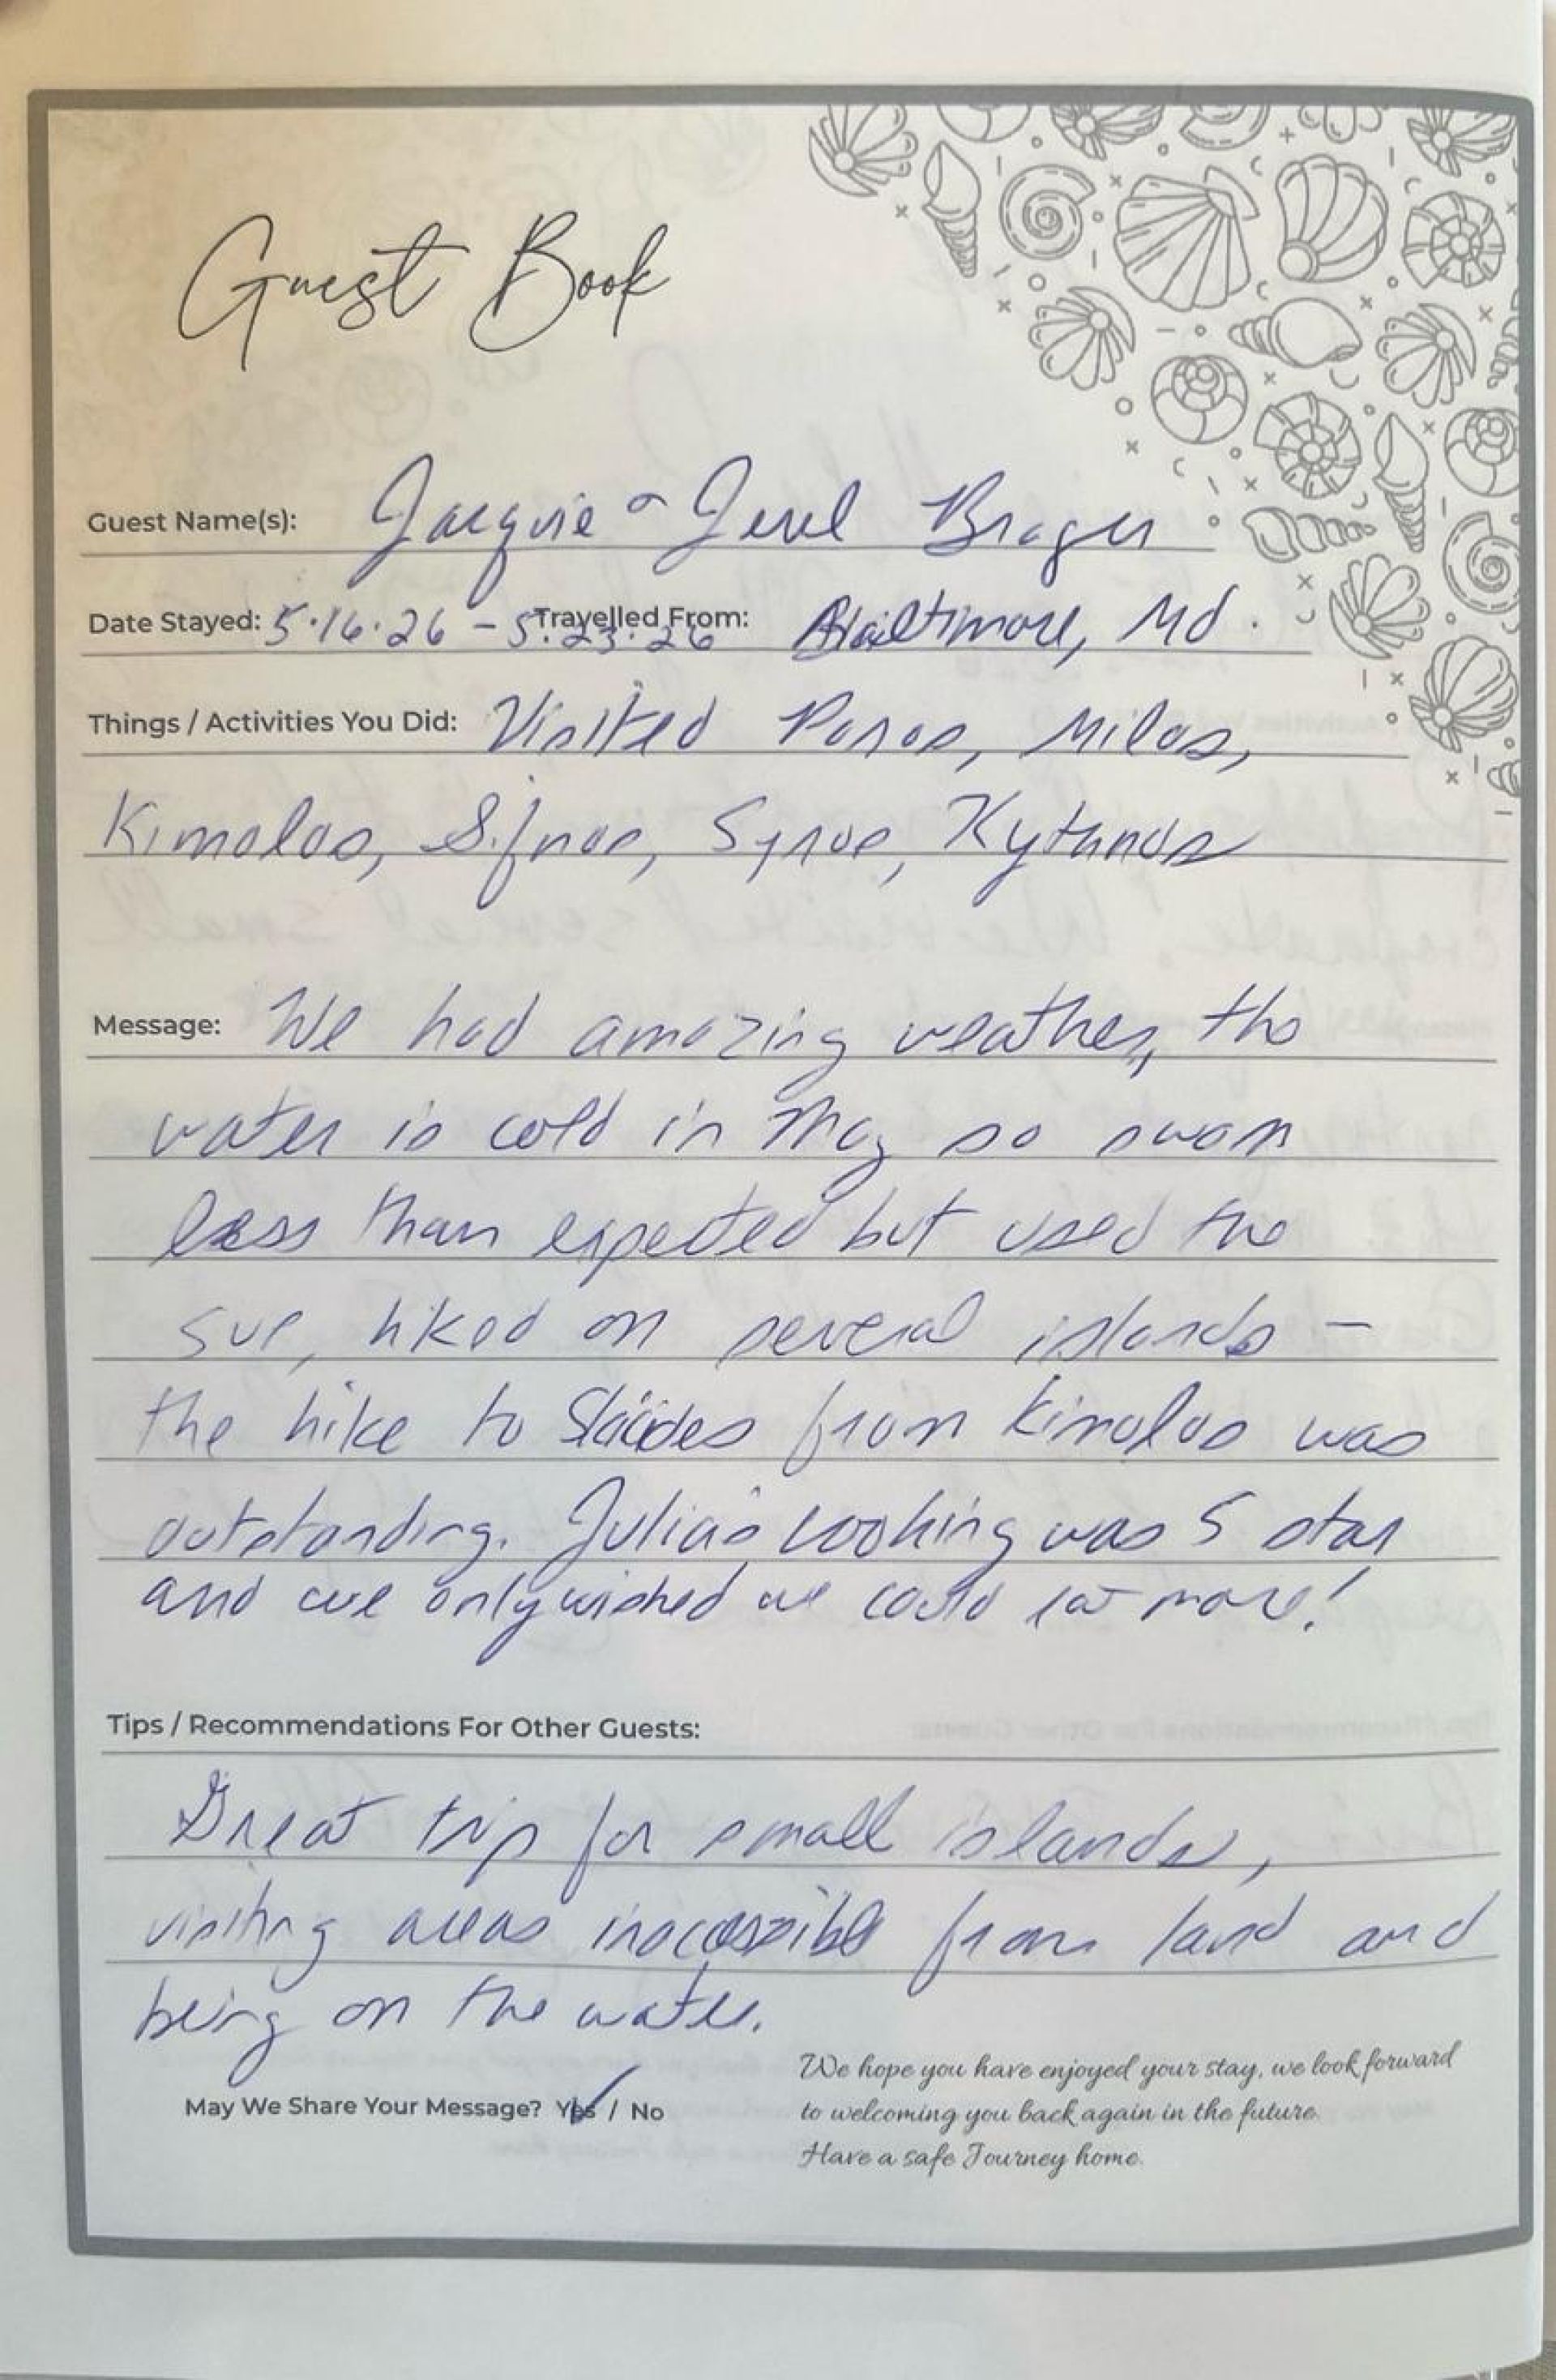 Guest Book
Guest Name(s): Jacquie & Jerel Brager
Date Stayed: 5.16.26 - 5.23.26 Travelled From: Baltimore, Md.
Things / Activities You Did: Visited Paros, Milos,
Kimolos, Sifnos, Syros, Kythnos
Message: We had amazing weather, tho
water is cold in May so swam
less than expected but used the
sup, hiked on several islands -
the hike to from Kimolos was
outstanding. Julia's cooking was 5 star
and we only wished we could eat more!
Tips / Recommendations For Other Guests:
Great trip for small islands,
visiting areas inaccessible from land and
being on the water.
We hope you have enjoyed your stay, we look forward
to welcoming you back again in the future.
Have a safe Journey home.
May We Share Your Message? Yes / No